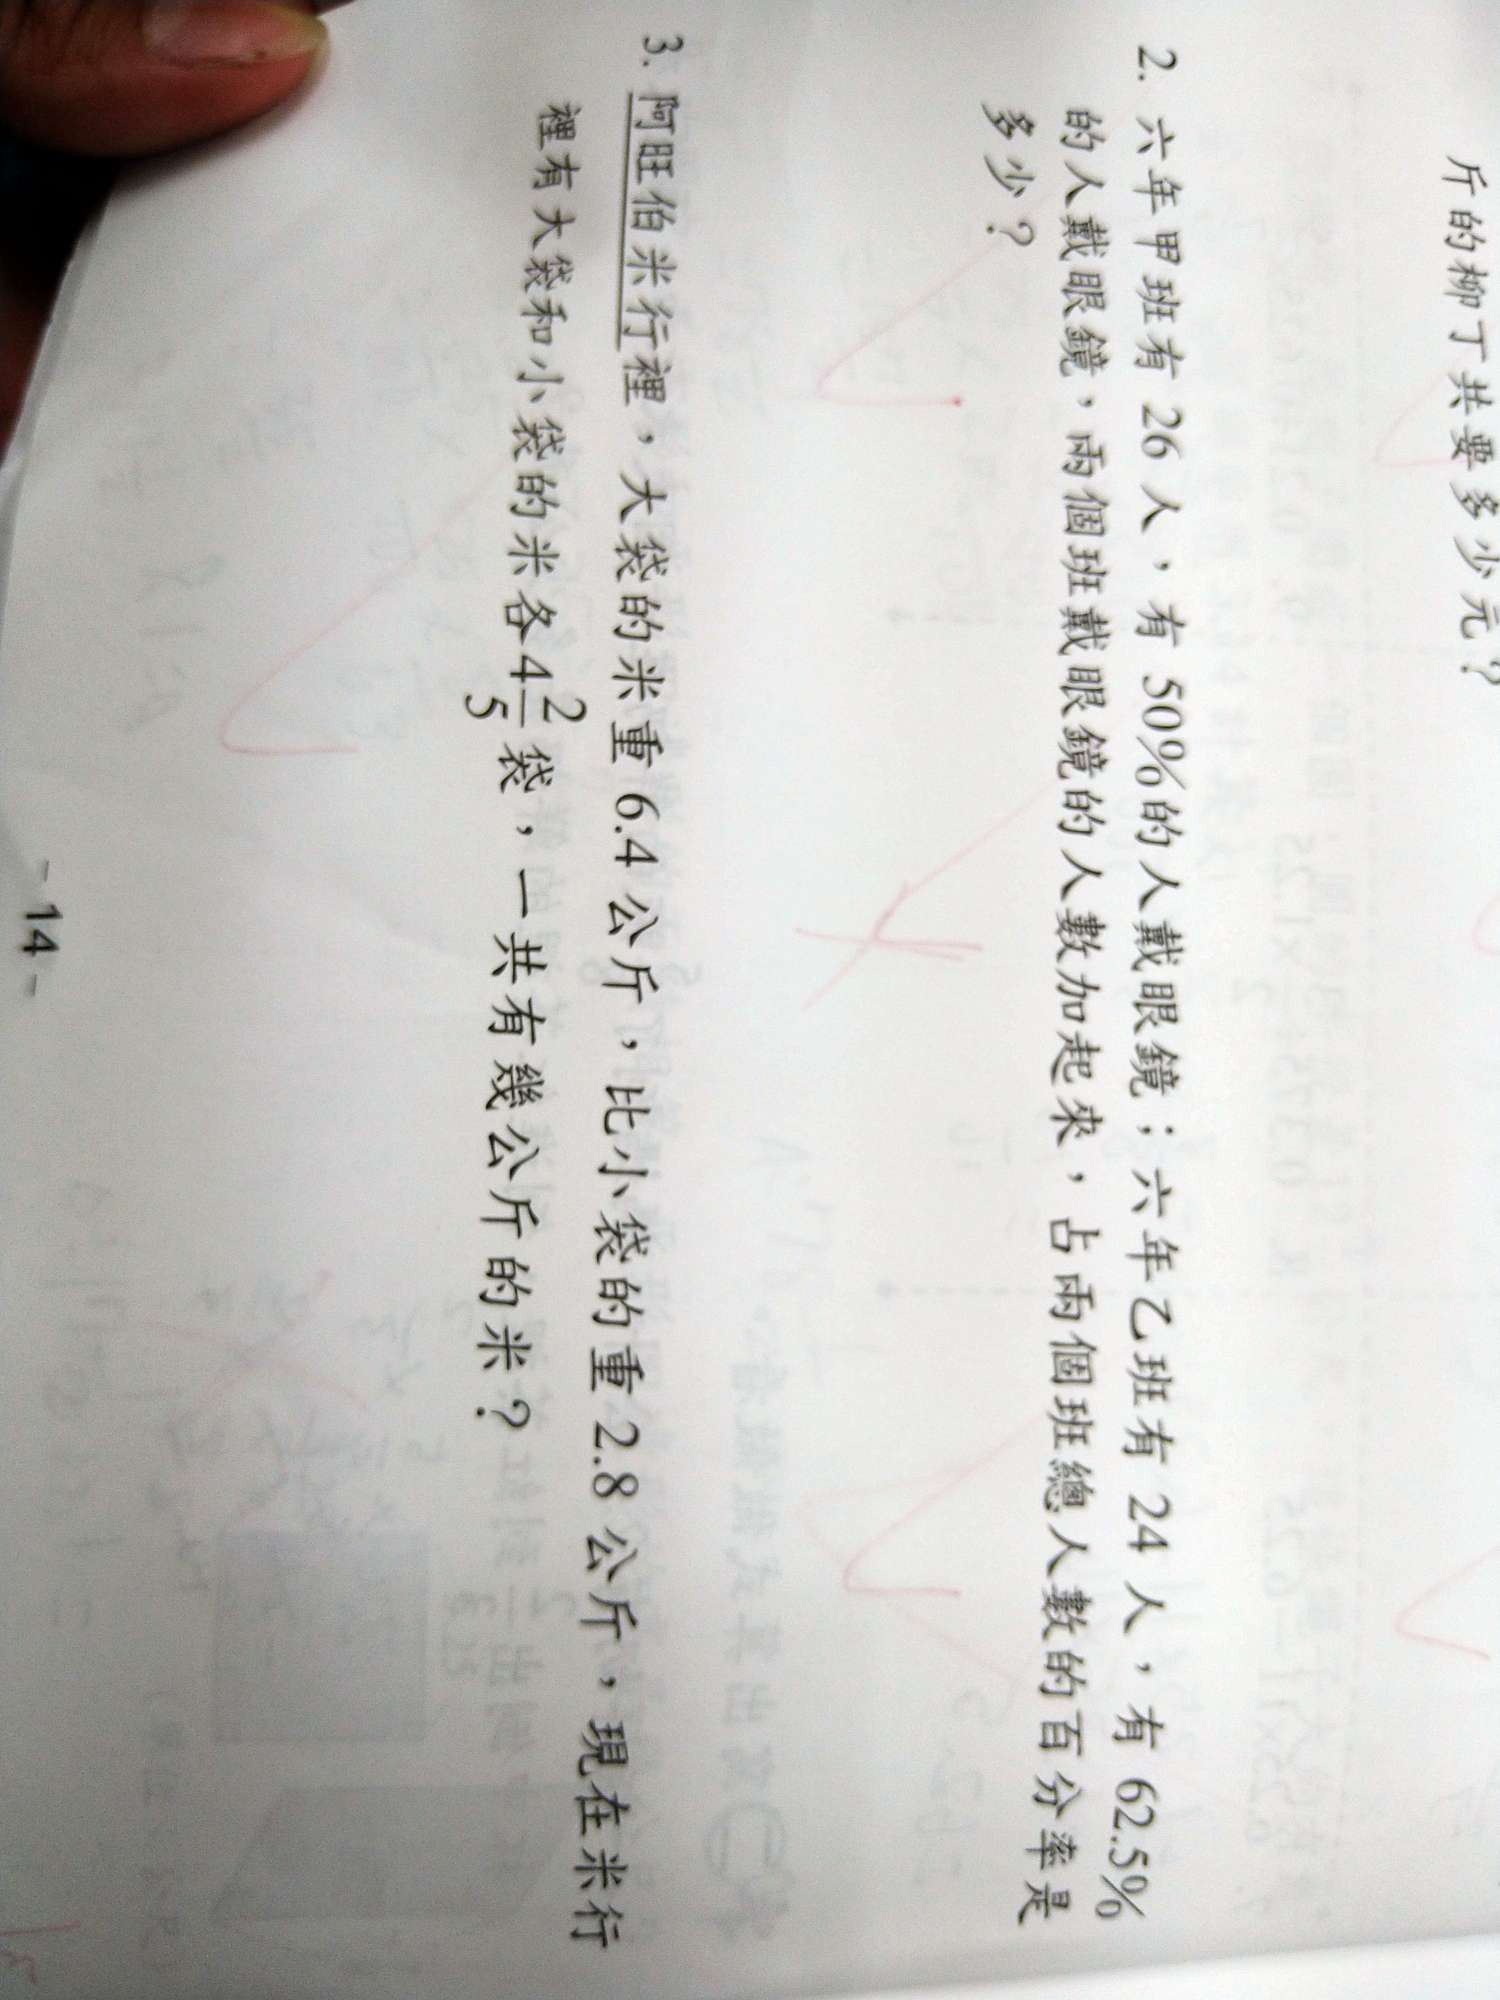 斤的柳丁共要多少元？
2. 六年甲班有 26 人，有 50%的人戴眼鏡；六年乙班有 24 人，有 62.5%
的人戴眼鏡，兩個班戴眼鏡的人數加起來，占兩個班總人數的百分率是
多少？
3. 阿旺伯米行裡，大袋的米重 6.4 公斤，比小袋的重 2.8 公斤，現在米行
裡有大袋和小袋的米各4 2/5 袋，一共有幾公斤的米？
- 14 -